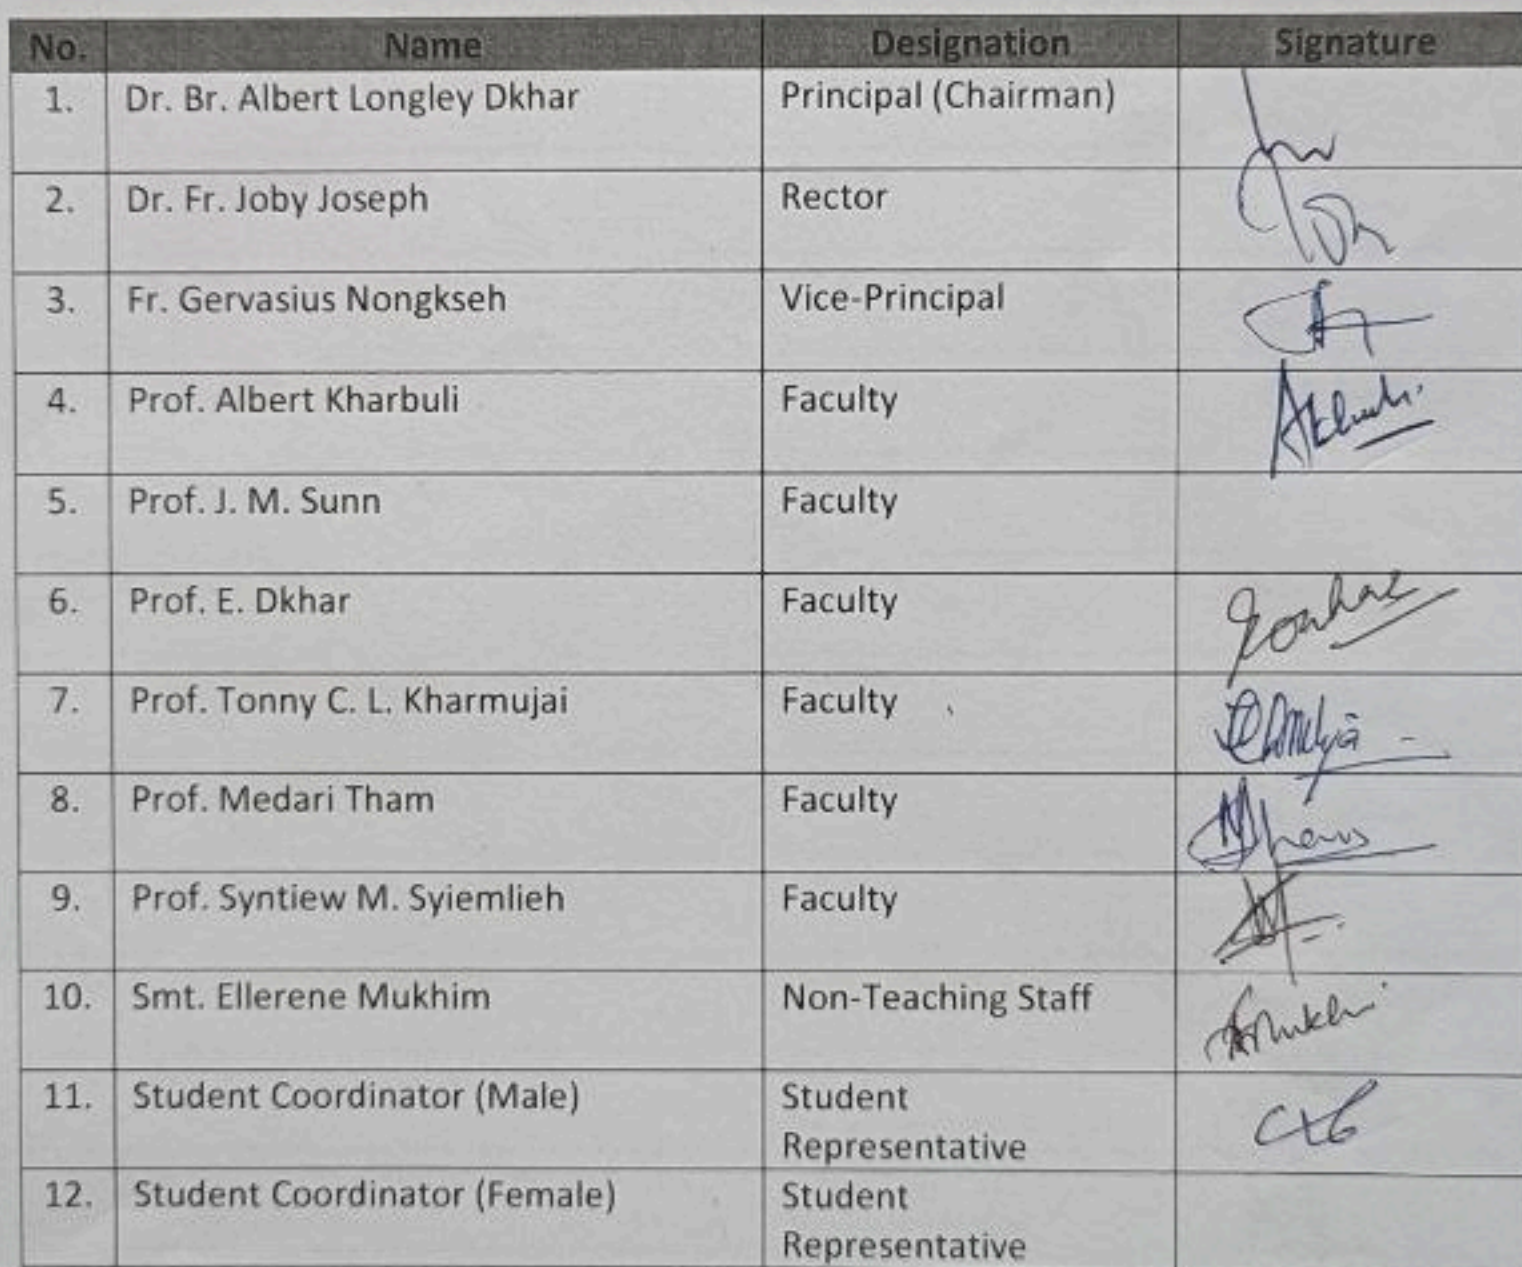 No. Name Designation Signature
1. Dr. Br. Albert Longley Dkhar Principal (Chairman)
2. Dr. Fr. Joby Joseph Rector
3. Fr. Gervasius Nongkseh Vice-Principal
4. Prof. Albert Kharbuli Faculty
5. Prof. J. M. Sunn Faculty
6. Prof. E. Dkhar Faculty
7. Prof. Tonny C. L. Kharmujai Faculty
8. Prof. Medari Tham Faculty
9. Prof. Syntiew M. Syiemlieh Faculty
10. Smt. Ellerene Mukhim Non-Teaching Staff
11. Student Coordinator (Male) Student
Representative
12. Student Coordinator (Female) Student
Representative